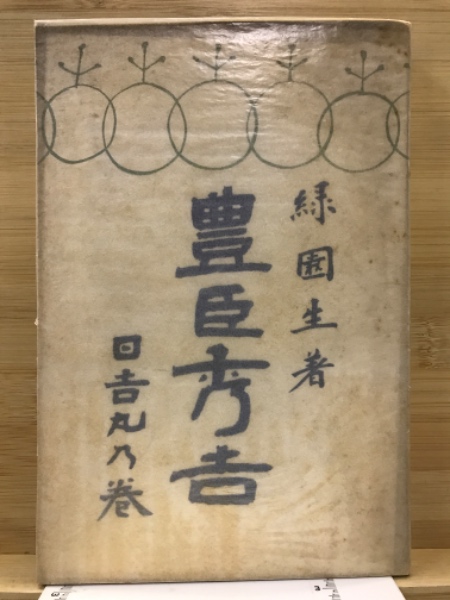 緑園生著
豊臣秀吉
日吉丸乃巻